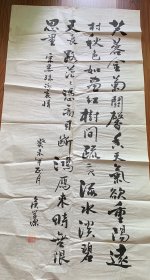 芙蓉金菊鬪馨香天氣欲重陽遠
村秋色如畫紅樹間疏黄流水淡碧
天長路茫茫憑高目斷鴻雁來時無限
思量 宋晏殊訴衷情
癸未 月